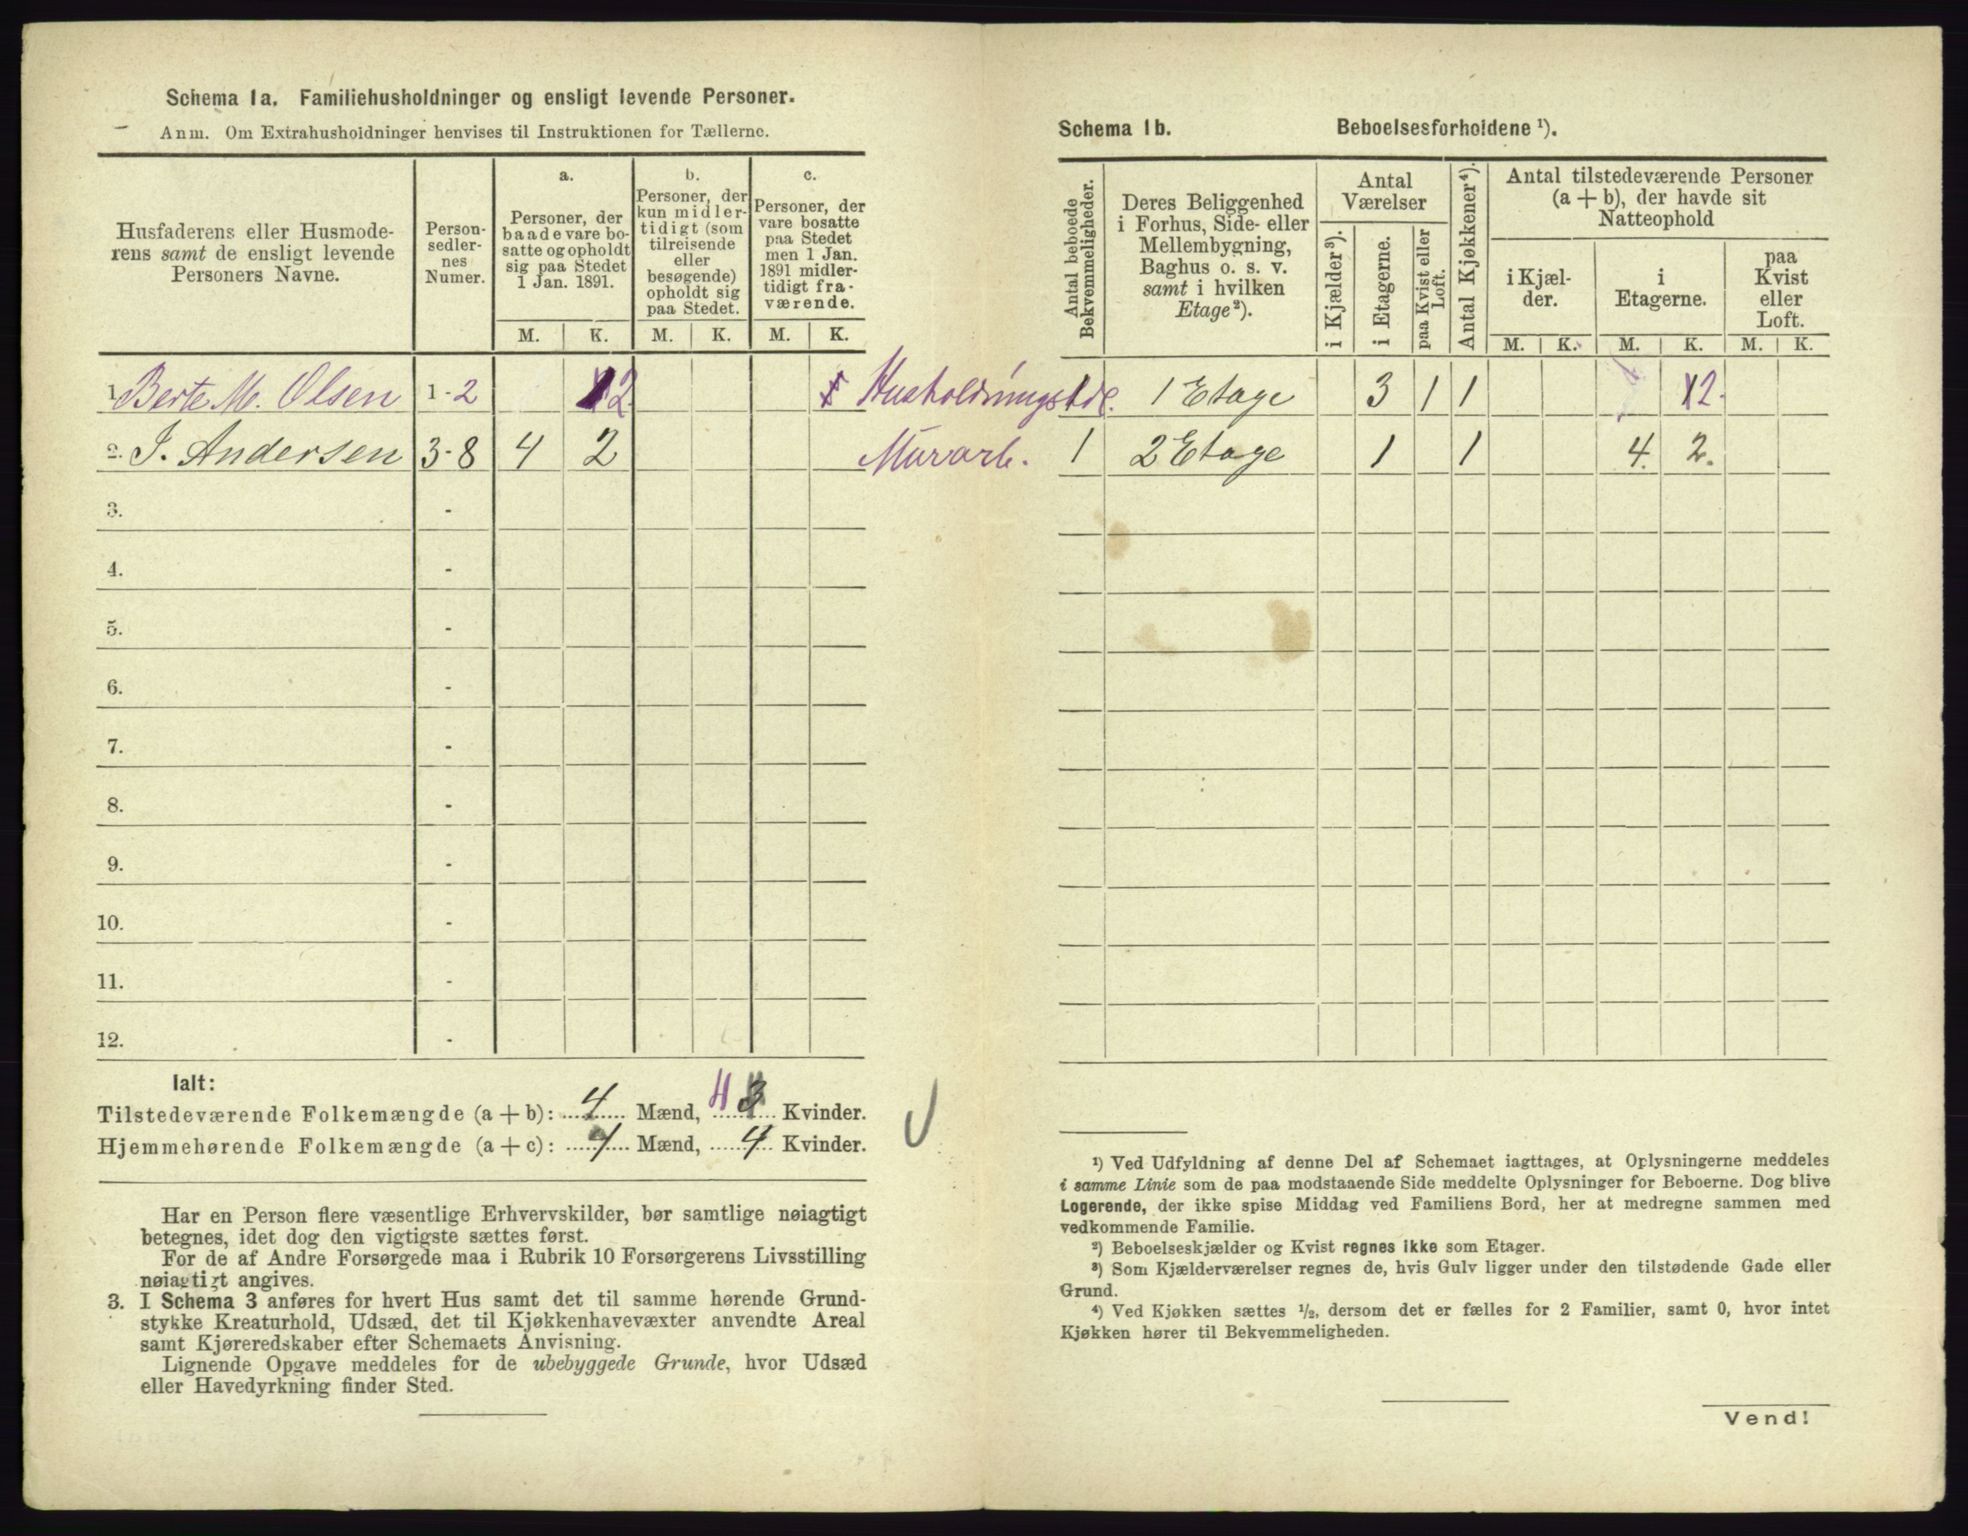 Schema 1a. Familiehusholdninger og ensligt levende Personer.
Anm. Om Extrahusholdninger henvises til Instruktionen for Tællerne.
Husfaderens eller Husmoderens samt de ensligt levende Personers Navne.
Personsedlernes Numer.
a.
Personer, der baade vare bosatte og opholdt sig paa Stedet 1 Jan. 1891.
b.
Personer, der kun midlertidigt (som tilreisende eller besøgende) opholdt sig paa Stedet.
c.
Personer, der vare bosatte paa Stedet men 1 Jan. 1891 midlertidigt fraværende.
M. K. M. K. M. K.
1. Berte M. Olsen 1-2 2 Husholdning
2. J. Andersen 3-8 4 2 Murarb.
3. -
4. -
5. -
6. -
7. -
8. -
9. -
10. -
11. -
12. -
Ialt:
Tilstedeværende Folkemængde (a + b): 4 Mænd, 4 3 Kvinder.
Hjemmehørende Folkemængde (a + c): 4 Mænd, 4 Kvinder.
Har en Person flere væsentlige Erhvervskilder, bør samtlige nøiagtigt
betegnes, idet dog den vigtigste sættes først.
For de af Andre Forsørgede maa i Rubrik 10 Forsørgerens Livsstilling
nøiagtigt angives.
3. I Schema 3 anføres for hvert Hus samt det til samme hørende Grund-
stykke Kreaturhold, Udsæd, det til Kjøkkenhavevæxter anvendte Areal
samt Kjøreredskaber efter Schemaets Anvisning.
Lignende Opgave meddeles for de ubebyggede Grunde, hvor Udsæd
eller Havedyrkning finder Sted.
Schema 1b. Beboelsesforholdene ¹).
Antal beboede Bekvemmeligheder.
Deres Beliggenhed i Forhus, Side- eller Mellembygning, Baghus o. s. v. samt i hvilken Etage²).
Antal Værelser
i Kjælder³).
i Etagerne.
paa Kvist eller Loft.
Antal Kjøkkener⁴).
Antal tilstedeværende Personer (a + b), der havde sit Natteophold
i Kjælder.
i Etagerne.
paa Kvist eller Loft.
M. K. M. K. M. K.
1 1 Etage 3 1 1 2.
1 2 Etage 1 1 4. 2.
¹) Ved Udfyldning af denne Del af Schemaet iagttages, at Oplysningerne meddeles
i samme Linie som de paa modstaaende Side meddelte Oplysninger for Beboerne. Dog blive
Logerende, der ikke spise Middag ved Familiens Bord, her at medregne sammen med
vedkommende Familie.
²) Beboelseskjælder og Kvist regnes ikke som Etager.
³) Som Kjælderværelser regnes de, hvis Gulv ligger under den tilstødende Gade eller
Grund.
⁴) Ved Kjøkken sættes ½, dersom det er fælles for 2 Familier, samt 0, hvor intet
Kjøkken hører til Bekvemmeligheden.
Vend!